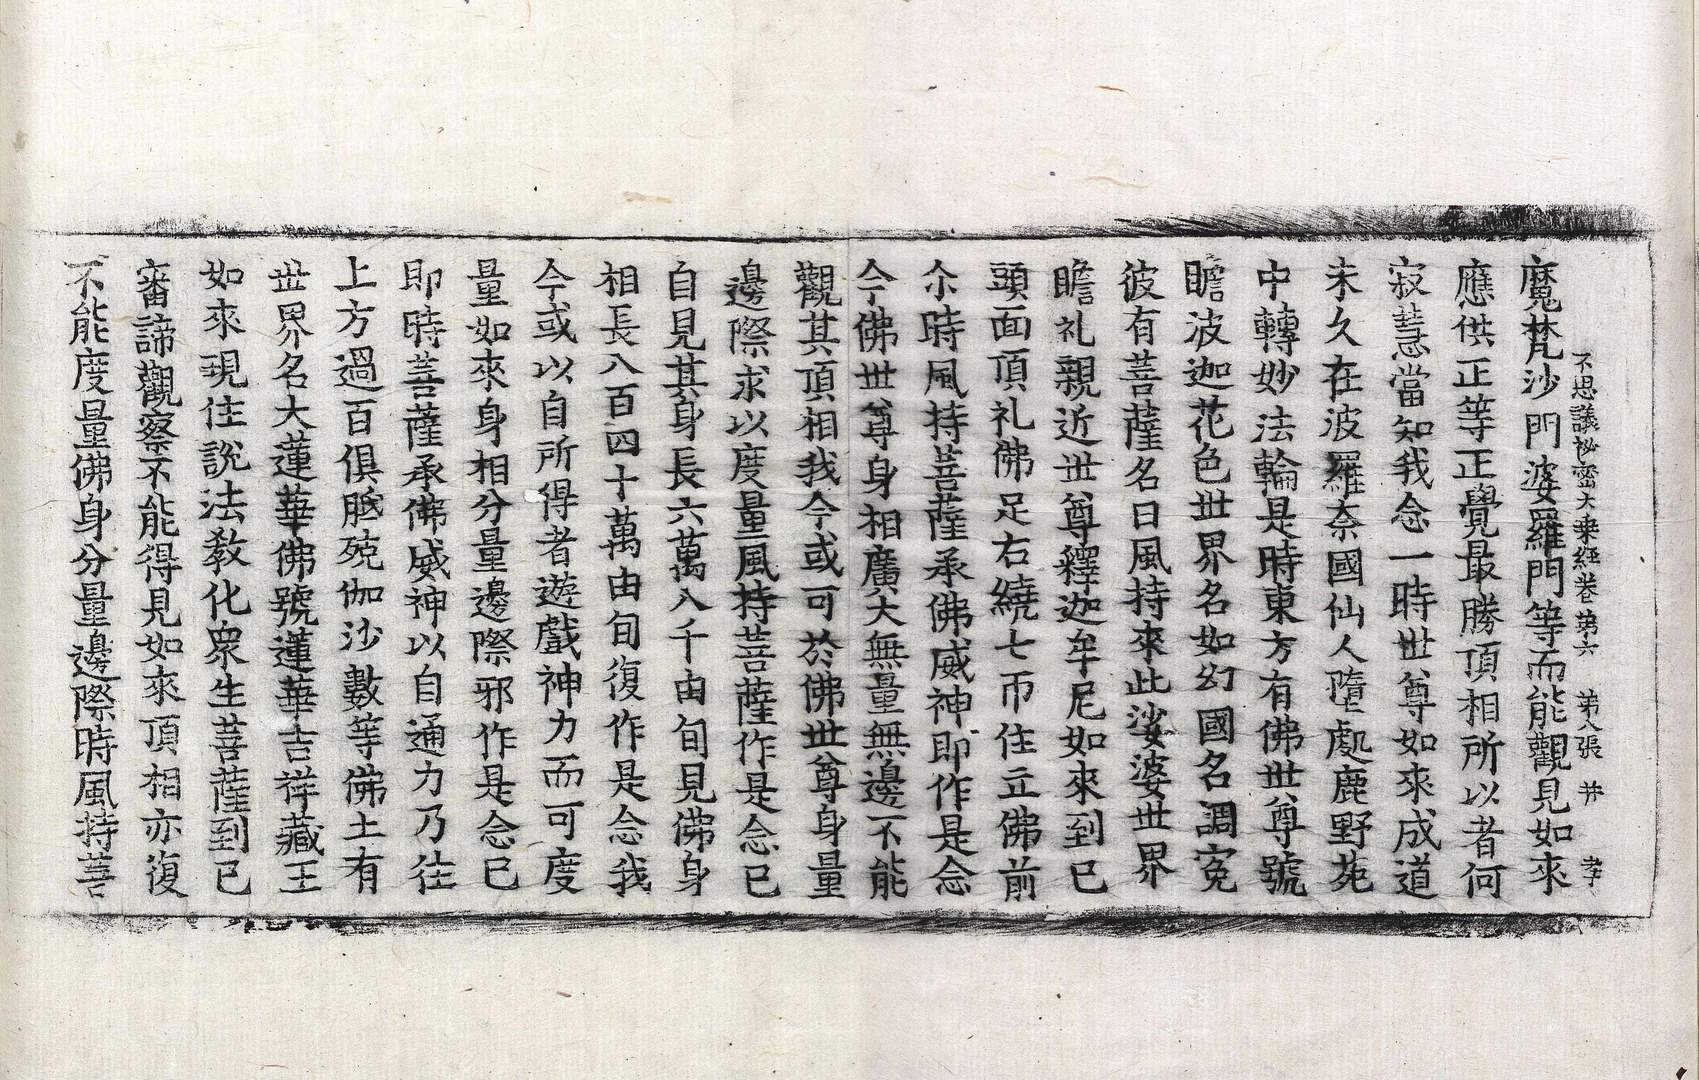 不思議祕密大乗經卷第六　第八張　幷　孝
魔梵沙門婆羅門等而能觀見如來
應供正等正覺最勝頂相所以者何
寂慧當知我念一時世尊如來成道
未久在波羅奈國仙人墮處鹿野苑
中轉妙法輪是時東方有佛世尊號
瞻波迦花色世界名如幻國名調寃
彼有菩薩名曰風持來此娑婆世界
瞻礼親近世尊釋迦牟尼如來到已
頭面頂礼佛足右繞七帀住立佛前
尒時風持菩薩承佛威神即作是念
今佛世尊身相廣大無量無邊不能
觀其頂相我今或可於佛世尊身量
邊際求以度量風持菩薩作是念已
自見其身長六萬八千由旬見佛身
相長八百四十萬由旬復作是念我
今或以自所得者遊戲神力而可度
量如來身相分量邊際邪作是念已
即時菩薩承佛威神以自通力乃往
上方過百俱胝殑伽沙數等佛土有
世界名大蓮華佛號蓮華吉祥藏王
如來現住說法教化眾生菩薩到已
審諦觀察不能得見如來頂相亦復
不能度量佛身分量邊際時風持菩